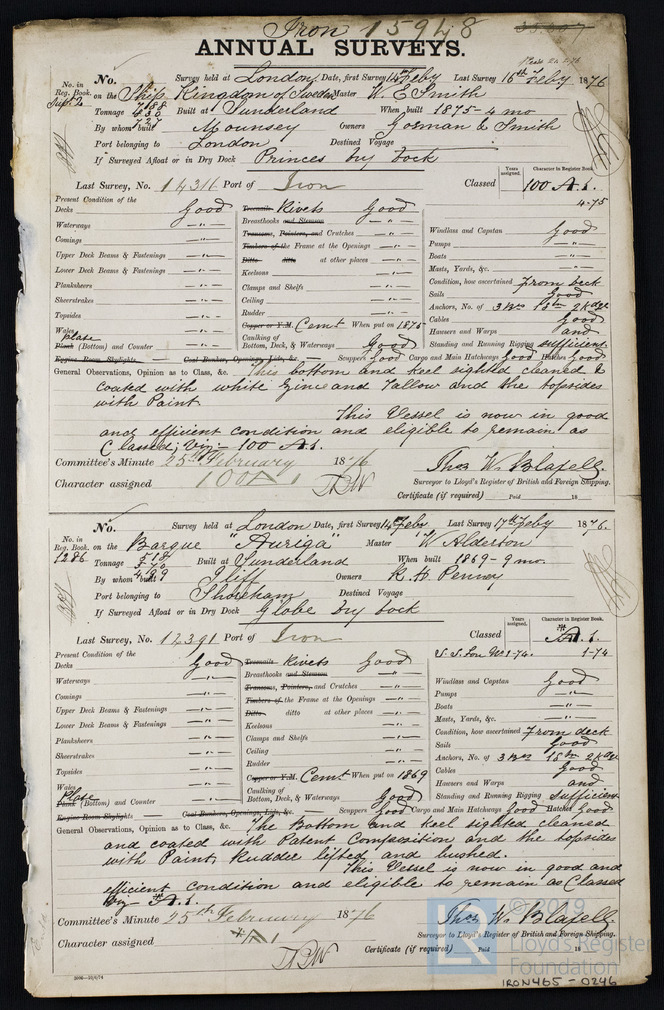 Iron 15948
ANNUAL SURVEYS.
No. in Reg. Book. No. Survey held at London Date, first Survey 14 Feby Last Survey 16th Feby 1876
Supt 2 on the Ship Kingdom of Sweden Master W. E. Smith
Tonnage Built at Sunderland When built 1875 - 4 mo
By whom built Mounsey Owners Gorman & Smith
Port belonging to London Destined Voyage
If Surveyed Afloat or in Dry Dock Princes dry dock
Last Survey, No. 14311 Port of Iron Classed Years assigned. Character in Register Book. 100 A.1.
4.75
Present Condition of the
Decks Good
Waterways - " -
Comings - " -
Upper Deck Beams & Fastenings - " -
Lower Deck Beams & Fastenings - " -
Planksheers - " -
Sheerstrakes - " -
Topsides - " -
Wales - " -
Plate (Bottom) and Counter - " -
Engine Room Skylights. Coal Bunker, Openings, Lids, &c.
Treenails Rivets Good
Breasthooks and Stemson - " -
Transoms, Pointers, and Crutches - " -
Timbers of the Frame at the Openings - " -
Ditto ditto at other places - " -
Keelsons - " -
Clamps and Shelfs - " -
Ceiling - " -
Rudder - " -
Copper or Y.M. Cemt When put on 1875
Caulking of Bottom, Deck, & Waterways Good
Windlass and Capstan Good
Pumps - " -
Boats - " -
Masts, Yards, &c. - " -
Condition, how ascertained From deck
Sails Good
Anchors, No. of 3 Brs 1 Stm 2 Kdge
Cables Good
Hawsers and Warps and
Standing and Running Rigging sufficient
Scuppers Good Cargo and Main Hatchways Good Hatches Good
General Observations, Opinion as to Class, &c. This bottom and keel sighted cleaned &
coated with white Zinc and Tallow and the topsides
with Paint.
This Vessel is now in good
and efficient condition and eligible to remain as
Classed; viz:- 100 A.1.
Committee's Minute 25th February 1876
Character assigned 100 A 1
Thos W. Blafell.
Surveyor to Lloyd's Register of British and Foreign Shipping.
Certificate (if required) Paid 18
No. in Reg. Book. No. Survey held at London Date, first Survey 14 Feby Last Survey 17th Feby 1876.
1286 on the Barque "Auriga" Master W. Alderson
Tonnage Built at Sunderland When built 1869 - 9 mo.
By whom built Iliff Owners R. H. Penney
Port belonging to Shoreham Destined Voyage
If Surveyed Afloat or in Dry Dock Globe dry dock
Last Survey, No. 12391 Port of Iron Classed Years assigned. Character in Register Book. A.1.
S. S. Lon No 1-74. 1-74
Present Condition of the
Decks Good
Waterways - " -
Comings - " -
Upper Deck Beams & Fastenings - " -
Lower Deck Beams & Fastenings - " -
Planksheers - " -
Sheerstrakes - " -
Topsides - " -
Wales - " -
Plate (Bottom) and Counter - " -
Engine Room Skylights Coal Bunkers, Openings, Lids, &c.
Treenails Rivets Good
Breasthooks and Stemson - " -
Transoms, Pointers, and Crutches - " -
Timbers of the Frame at the Openings - " -
Ditto ditto at other places - " -
Keelsons - " -
Clamps and Shelfs - " -
Ceiling - " -
Rudder - " -
Copper or Y.M. Cemt When put on 1869
Caulking of Bottom, Deck, & Waterways Good
Windlass and Capstan Good
Pumps - " -
Boats - " -
Masts, Yards, &c. - " -
Condition, how ascertained From deck
Sails Good
Anchors, No. of 3 Brs 1 Stm 2 Kdge
Cables Good
Hawsers and Warps and
Standing and Running Rigging sufficient
Scuppers Good Cargo and Main Hatchways Good Hatches Good
General Observations, Opinion as to Class, &c. The Bottom and keel sighted cleaned
and coated with Patent Composition and the topsides
with Paint. Rudder lifted and bushed.
This Vessel is now in good and
efficient condition and eligible to remain as Classed
viz A.1.
Committee's Minute 25th February 1876
Character assigned A 1
Thos W. Blafell
Surveyor to Lloyd's Register of British and Foreign Shipping.
Certificate (if required) Paid 18
© 2019
Lloyd's Register
Foundation
IRON465-0246